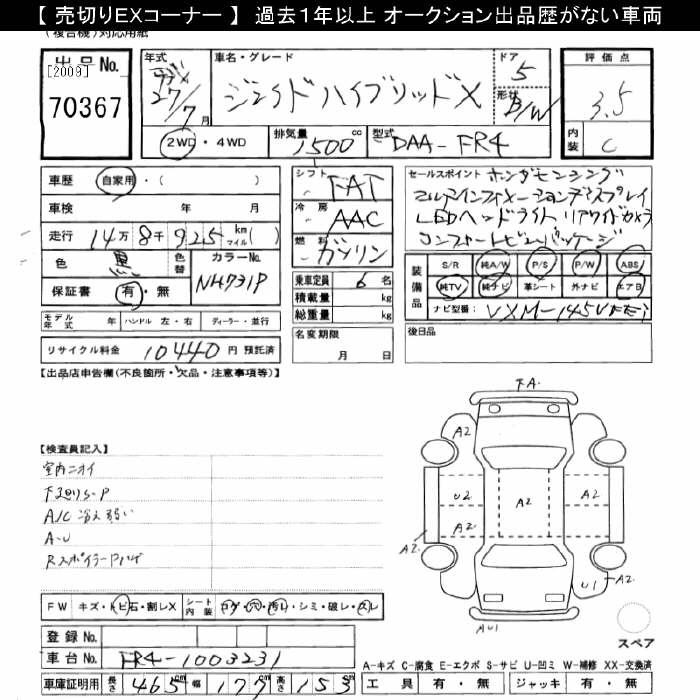 【 売切りEXコーナー 】 過去1年以上 オークション出品歴がない車両
(複合機)対応用紙
出品No.
[2009]
70367
年式 27/7月
車名・グレード ジェイドハイブリッドX
ドア 5
形状 B/W
2WD・4WD
排気量 1500cc
型式 DAA-FR4
評価点 3.5
内装 C
車歴 自家用・( )
車検 年 月
走行 14万8千925 km マイル( )
色 黒 色替 カラーNo. NH731P
保証書 有・無
モデル年式 年 ハンドル 左・右 ディーラー・並行
リサイクル料金 10440円 預託済
シフト FAT
冷房 AAC
燃料 ガソリン
乗車定員 6名
積載量 kg
総重量 kg
名変期限 月 日
セールスポイント ホンダセンシング
マルチインフォメーションディスプレイ
LEDヘッドライト リアワイドカメラ
コンフォートビューパッケージ
装備品 S/R 純A/W P/S P/W ABS
純TV 純ナビ 革シート 外ナビ エアB
ナビ型番: VXM-145VFEi
後日品
【出品店申告欄(不良箇所・欠品・注意事項等)】
【検査員記入】
室内ニオイ
下廻りS-P
A/C 冷え弱い
A-U
RスポイラーPハゲ
F.A.
A2
A2
U2 A2 A2
A2
A2
U1 A2
AU1
スペア
FW キズ・トビ石・割レX シート内装 コゲ・穴・汚レ・シミ・破レ・スレ
登録No.
車台No. FR4-1003231
車庫証明用 長さ 465cm 幅 177cm 高さ 153cm
A-キズ C-腐食 E-エクボ S-サビ U-凹ミ W-補修 XX-交換済
工具 有・無 ジャッキ 有・無